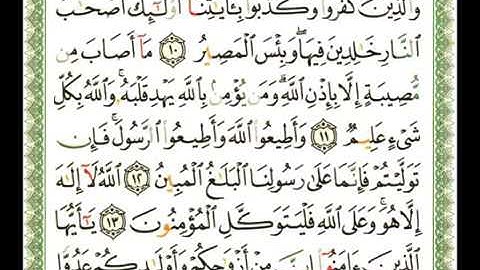 وَٱلَّذِينَ كَفَرُوا۟ وَكَذَّبُوا۟ بِـَٔايَـٰتِنَآ أُو۟لَـٰٓئِكَ أَصْحَـٰبُ
ٱلنَّارِ خَـٰلِدِينَ فِيهَا ۖ وَبِئْسَ ٱلْمَصِيرُ ١٠ مَآ أَصَابَ مِن
مُّصِيبَةٍ إِلَّا بِإِذْنِ ٱللَّهِ ۗ وَمَن يُؤْمِنۢ بِٱللَّهِ يَهْدِ قَلْبَهُۥ ۚ وَٱللَّهُ بِكُلِّ
شَىْءٍ عَلِيمٌ ١١ وَأَطِيعُوا۟ ٱللَّهَ وَأَطِيعُوا۟ ٱلرَّسُولَ ۚ فَإِن
تَوَلَّيْتُمْ فَإِنَّمَا عَلَىٰ رَسُولِنَا ٱلْبَلَـٰغُ ٱلْمُبِينُ ١٢ ٱللَّهُ لَآ إِلَـٰهَ
إِلَّا هُوَ ۚ وَعَلَى ٱللَّهِ فَلْيَتَوَكَّلِ ٱلْمُؤْمِنُونَ ١٣ يَـٰٓأَيُّهَا
ٱلَّذِينَ ءَامَنُوٓا۟ إِنَّ مِنْ أَزْوَٰجِكُمْ وَأَوْلَـٰدِكُمْ عَدُوًّا